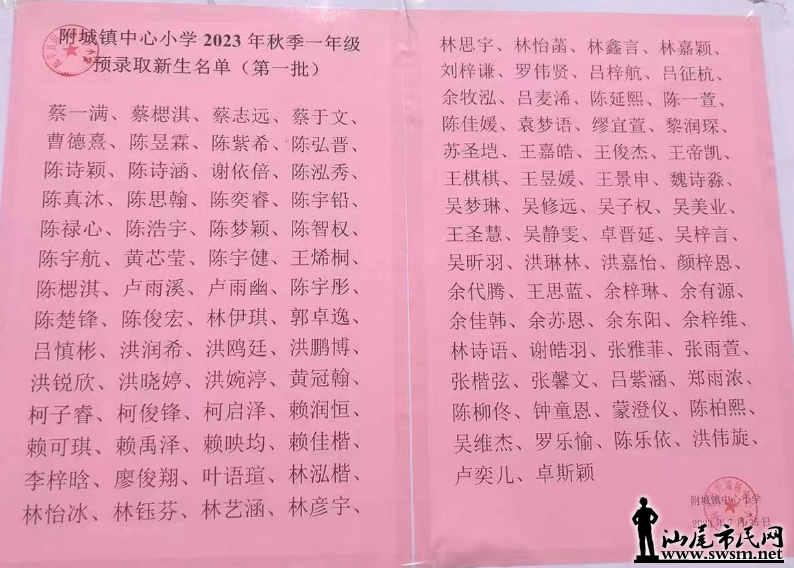 附城镇中心小学 2023 年秋季一年级
预录取新生名单（第一批）
蔡一满、蔡楒淇、蔡志远、蔡于文、
曹德熹、陈昱霖、陈紫希、陈弘晋、
陈诗颖、陈诗涵、谢依倍、陈泓秀、
陈真沐、陈思翰、陈奕睿、陈宇铅、
陈禄心、陈浩宇、陈梦颖、陈智权、
陈宇航、黄芯莹、陈宇健、王烯桐、
陈楒淇、卢雨溪、卢雨幽、陈宇彤、
陈楚锋、陈俊宏、林伊琪、郭卓逸、
吕慎彬、洪润希、洪鸥廷、洪鹏博、
洪锐欣、洪晓婷、洪婉渟、黄冠翰、
柯子睿、柯俊锋、柯启泽、赖润恒、
赖可琪、赖禹泽、赖映均、赖佳楷、
李梓晗、廖俊翔、叶语瑄、林泓楷、
林怡冰、林钰芬、林艺涵、林彦宇、
林思宇、林怡菡、林鑫言、林嘉颖、
刘梓谦、罗伟贤、吕梓航、吕征杭、
余牧泓、吕麦浠、陈延熙、陈一萱、
陈佳媛、袁梦语、缪宜萱、黎润琛、
苏圣垲、王嘉皓、王俊杰、王帝凯、
王棋棋、王昱媛、王景申、魏诗淼、
吴梦琳、吴修远、吴子权、吴美业、
王圣慧、吴静雯、卓晋延、吴梓言、
吴昕羽、洪琳林、洪嘉怡、颜梓恩、
余代腾、王思蓝、余梓琳、余有源、
余佳韩、余苏恩、余东阳、余梓维、
林诗语、谢皓羽、张雅菲、张雨萱、
张楷弦、张馨文、吕紫涵、郑雨浓、
陈柳佟、钟童恩、蒙澄仪、陈柏熙、
吴维杰、罗乐愉、陈乐依、洪伟旋、
卢奕儿、卓斯颖
附城镇中心小学
2023 年 7 月 25 日
汕尾市民网
www.swsm.net